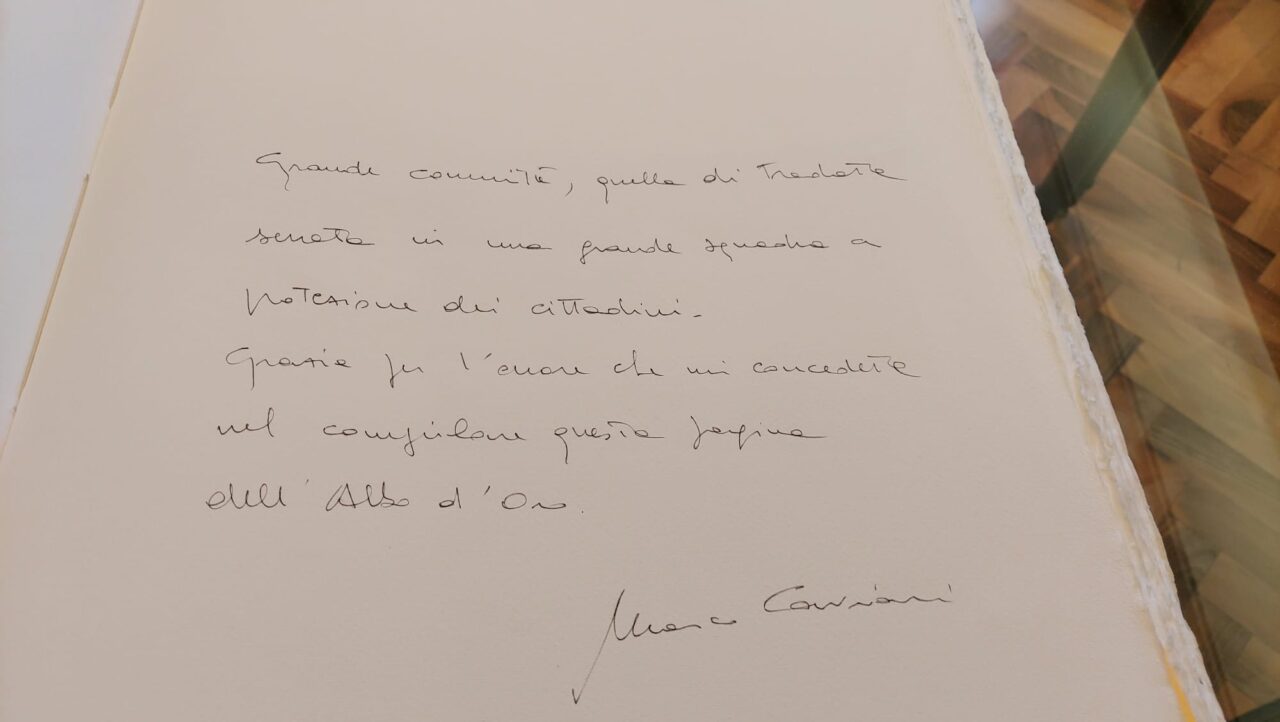 Grande comunità, quella di Tradate
serrata in una grande squadra a
protezione dei cittadini.
Grazie per l'onore che mi concedete
nel compilare questa pagina
dell'Albo d'Oro.
Marco Cavriani